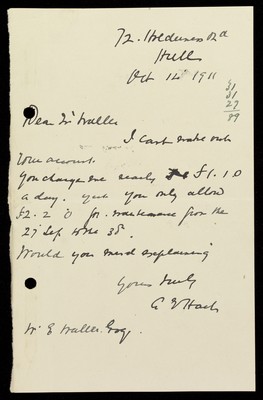 72. Holderness Rd
Hull
Oct 14th 1911
31
31
27
89
Dear Mr Waller
I cant make out
your account.
You charge me nearly £1.1.0
a day. yet you only allow
£2.2.0 for maintenance from the
27 Sep to the 30.
Would you mind explaining
Yours truly
W. E Waller. Esq.